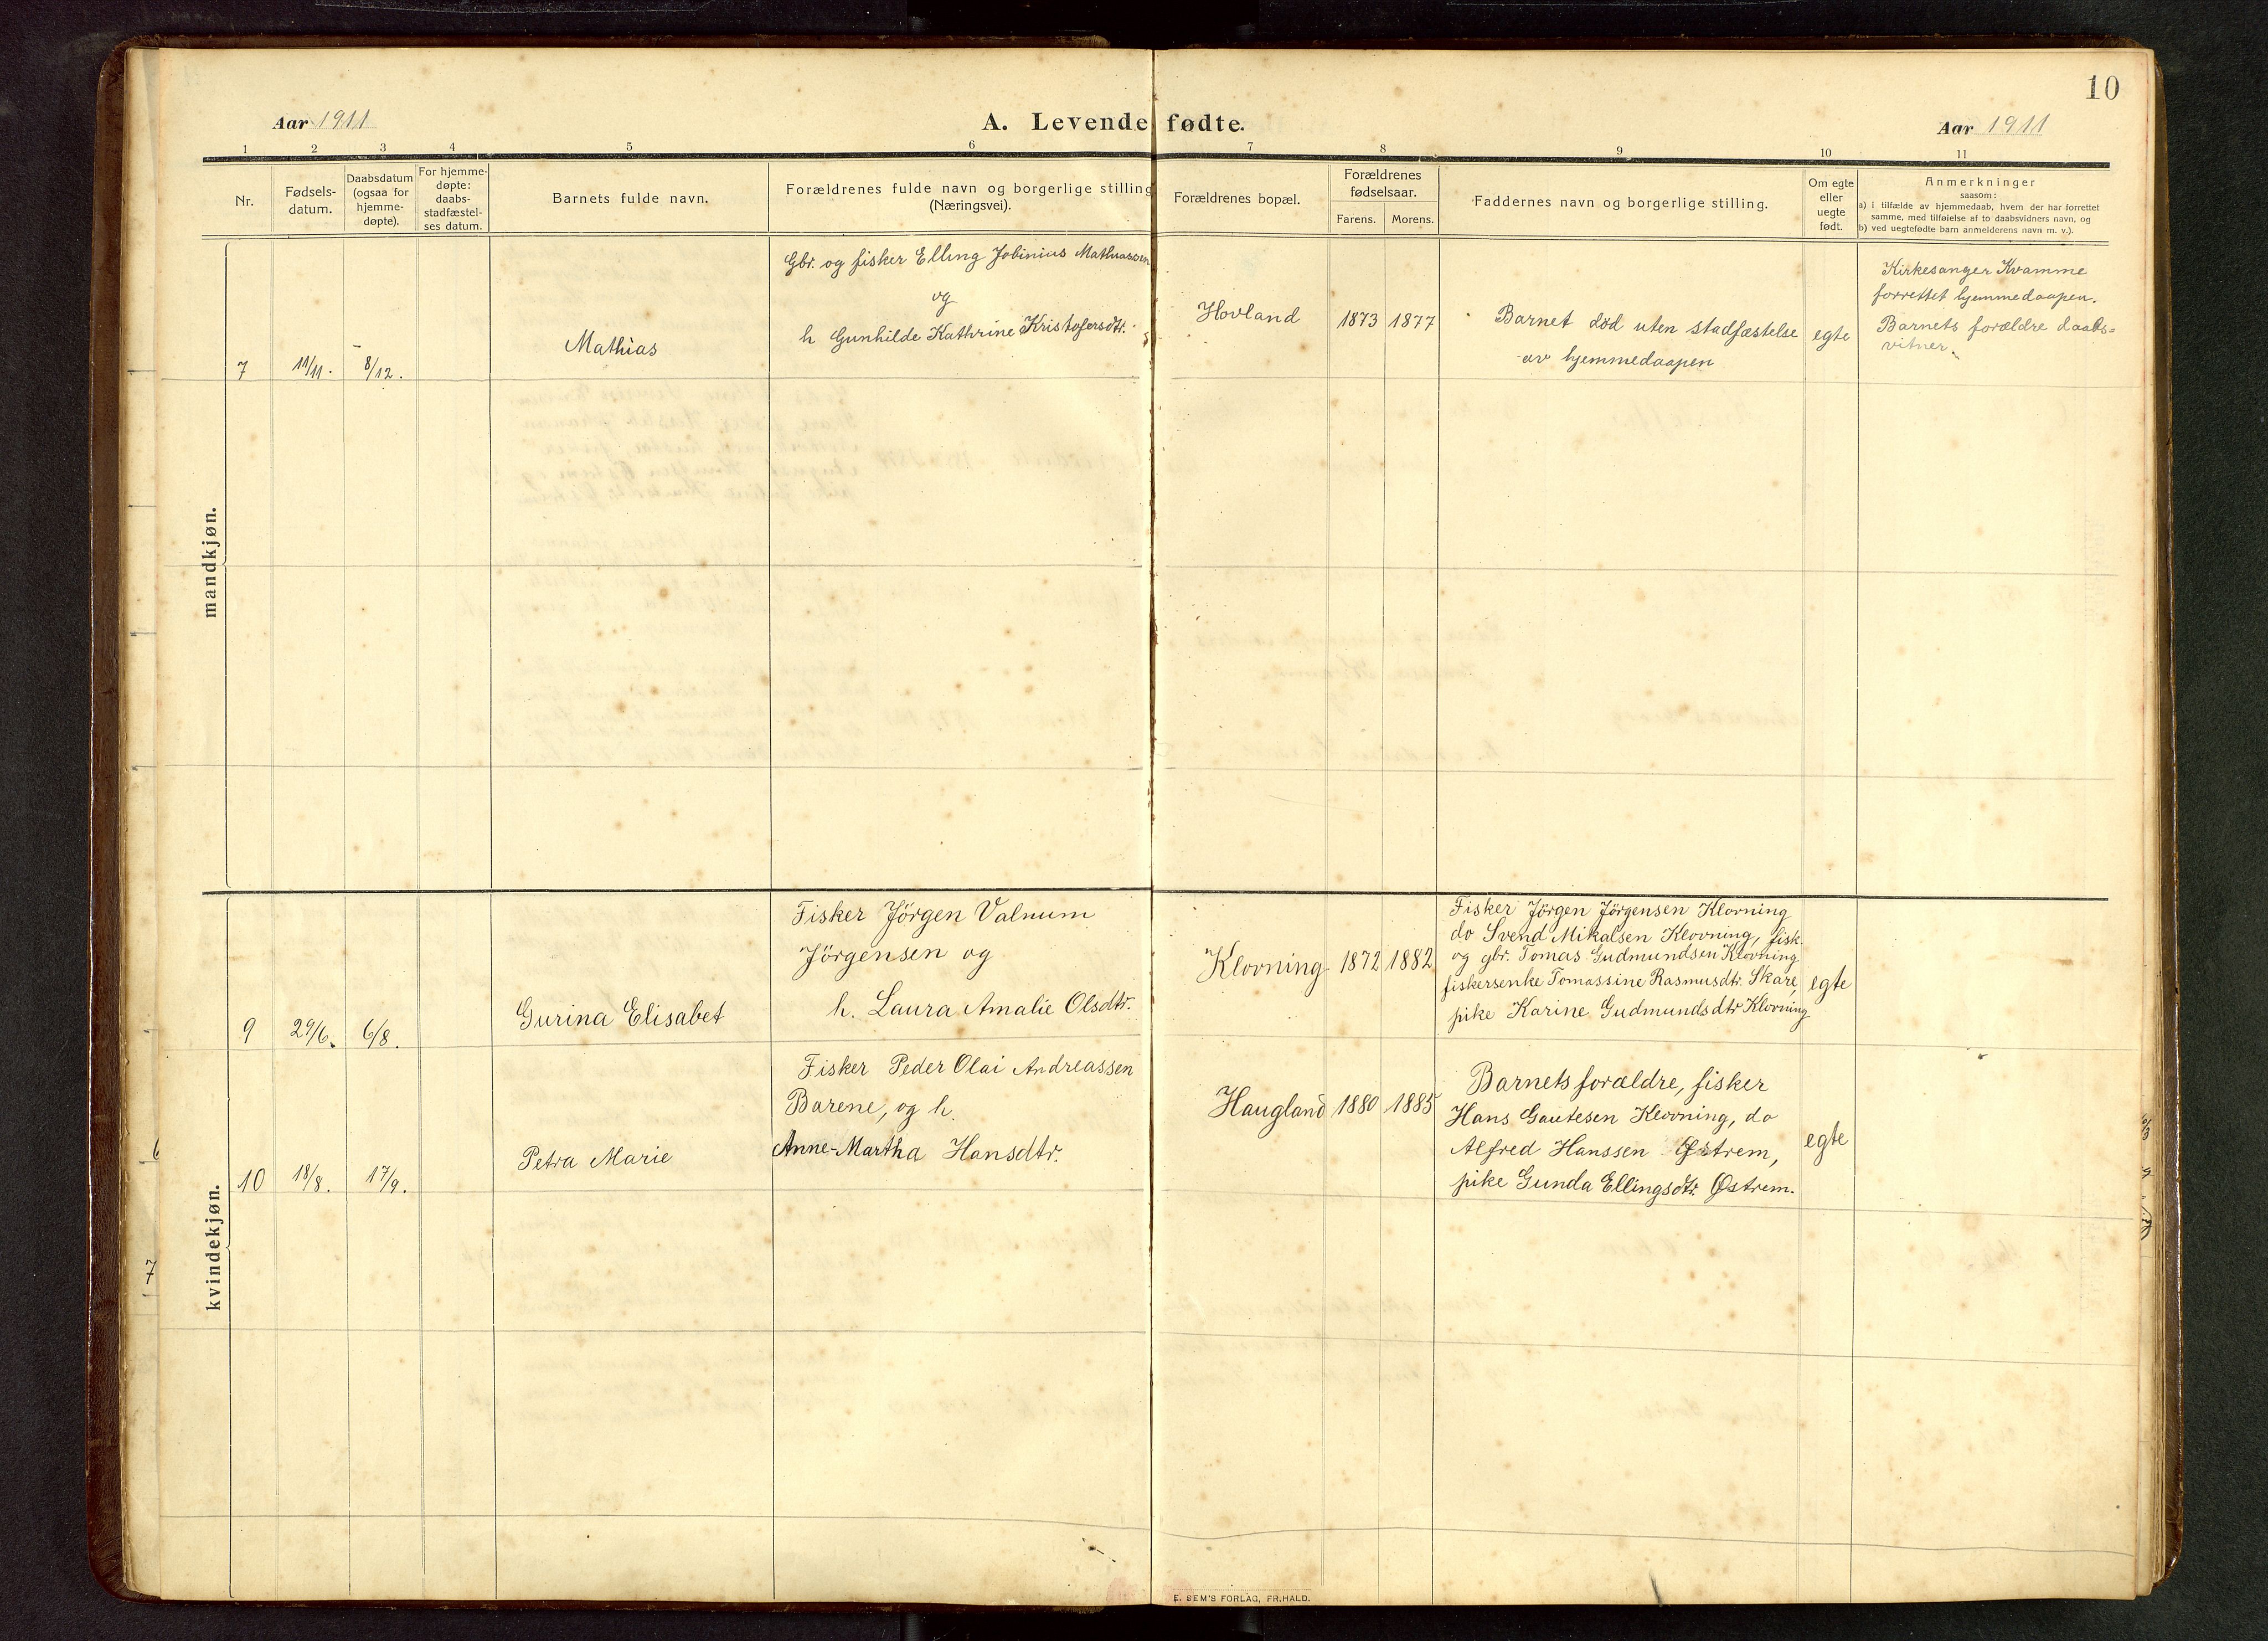 10
Aar 1911
A. Levende fødte.
Aar 1911
1 2 3 4 5 6 7 8 9 10 11
Nr.
Fødsels-
datum.
Daabsdatum
(ogsaa for
hjemme-
døpte).
For hjemme-
døpte:
daabs-
stadfæstel-
ses datum.
Barnets fulde navn.
Forældrenes fulde navn og borgerlige stilling
(Næringsvei).
Forældrenes bopæl.
Forældrenes
fødselsaar.
Farens. Morens.
Faddernes navn og borgerlige stilling.
Om egte
eller
uegte
født.
Anmerkninger
saasom:
a) i tilfælde av hjemmedaab, hvem der har forrettet
samme, med tilføielse af to daabsvidners navn, og
b) ved uegtefødte barn anmelderens navn m. v.).
mandkjøn.
7
11/11.
8/12.
Mathias
Gbr. og fisker Elling Jobinius Mathiassen
og
h Gunhilde Kathrine Kristofersdtr.
Hovland
1873
1877
Barnet död uten stadfæstelse
av hjemmedaapen
egte
Kirkesanger Kvamme
forrettet hjemmedaapen.
Barnets forældre daabs=
vitner.
kvindekjøn.
9
29/6.
6/8.
Gurina Elisabet
Fisker Jörgen Valnum
Jörgensen og
h. Laura Amalie Olsdtr.
Klovning
1872
1882
Fisker Jörgen Jörgensen Klovning
do Svend Mikalsen Klovning, fisk.
og gbr. Tomas Gudmundsen Klovning
fiskersenke Tomassine Rasmusdtr. Skare,
pike Karine Gudmundsdtr Klovning
egte
10
18/8.
17/9.
Petra Marie
Fisker Peder Olai Andreassen
Barene, og h.
Anne-Martha Hansdtr.
Haugland
1880
1885
Barnets forældre, fisker
Hans Gautesen Klovning, do
Alfred Hanssen Østrem,
pike Gunda Ellingsdtr. Østrem.
egte
7
E. SEM'S FORLAG, FR.HALD.